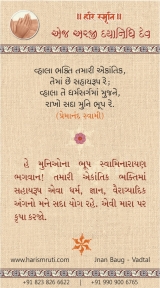 ॥ હરિ સ્મૃતિ ॥
એજ અરજી દયાનિધિ દેવ
વ્હાલા ભક્તિ તમારી એકાંતિક,
તેમાં છે સહાયરૂપ રે;
વ્હાલા તે ધર્મસર્ગમાં મુજને,
રાખો સદા મુનિ ભૂપ રે.
(પ્રેમાનંદ સ્વામી)
હે મુનિઓના ભૂપ સ્વામિનારાયણ
ભગવાન! તમારી એકાંતિક ભક્તિમાં
સહાયરૂપ એવા ધર્મ, જ્ઞાન, વૈરાગ્યાદિક
અંગનો મને સદા યોગ રહે. એવી મારા પર
કૃપા કરજો.
www.harismruti.com
Jnan Baug - Vadtal
+91 823 826 6622
+91 99 0900 2500